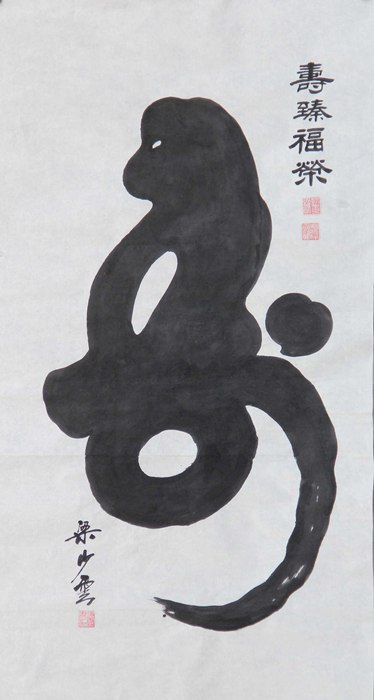 壽臻福榮
寿
梁少雲